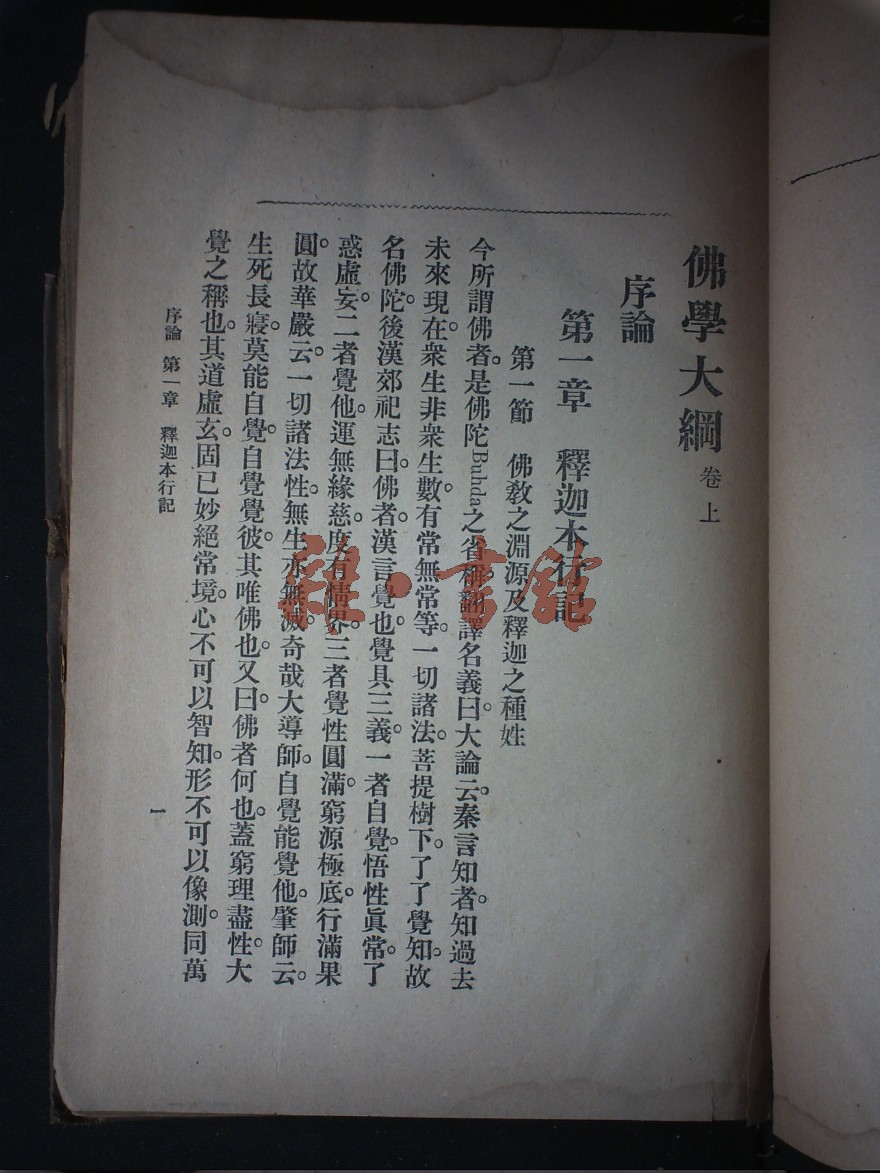 佛學大綱 卷上
序論
第一章 釋迦本行記
第一節 佛教之淵源及釋迦之種姓
今所謂佛者。是佛陀Buhda之省稱。翻譯名義曰。大論云。秦言知者。知過去
未來現在。衆生非衆生數。有常無常等。一切諸法。菩提樹下。了了覺知。故
名佛陀。後漢郊祀志曰。佛者。漢言覺也。覺具三義。一者自覺。悟性眞常。了
惑虛妄。二者覺他。運無緣慈。度有情界。三者覺性圓滿。窮源極底。行滿果
圓。故華嚴云。一切諸法性。無生亦無滅。奇哉大導師。自覺能覺他。肇師云。
生死長寢。莫能自覺。自覺覺彼。其唯佛也。又曰。佛者何也。蓋窮理盡性。大
覺之稱也。其道虛玄。固已妙絕常境。心不可以智知。形不可以像測。同萬
序論 第一章 釋迦本行記
一
雅·書館